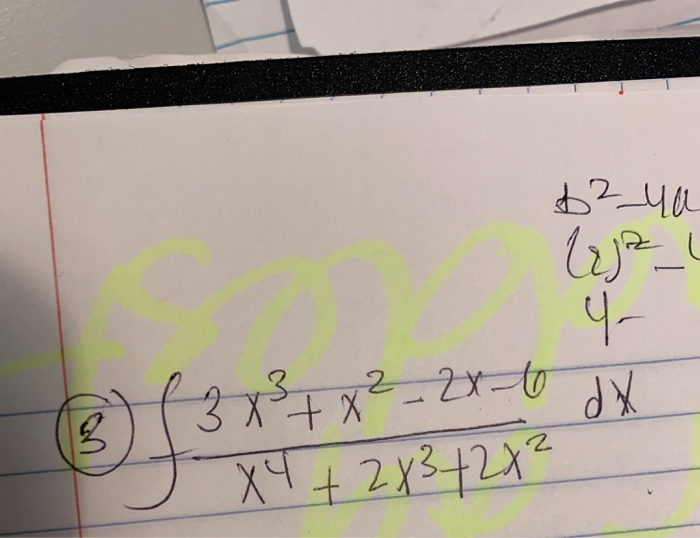 b²-4a
(2)²-4
4-
③ ∫ (3x³+x²-2x-6)/(x⁴+2x³+2x²) dx